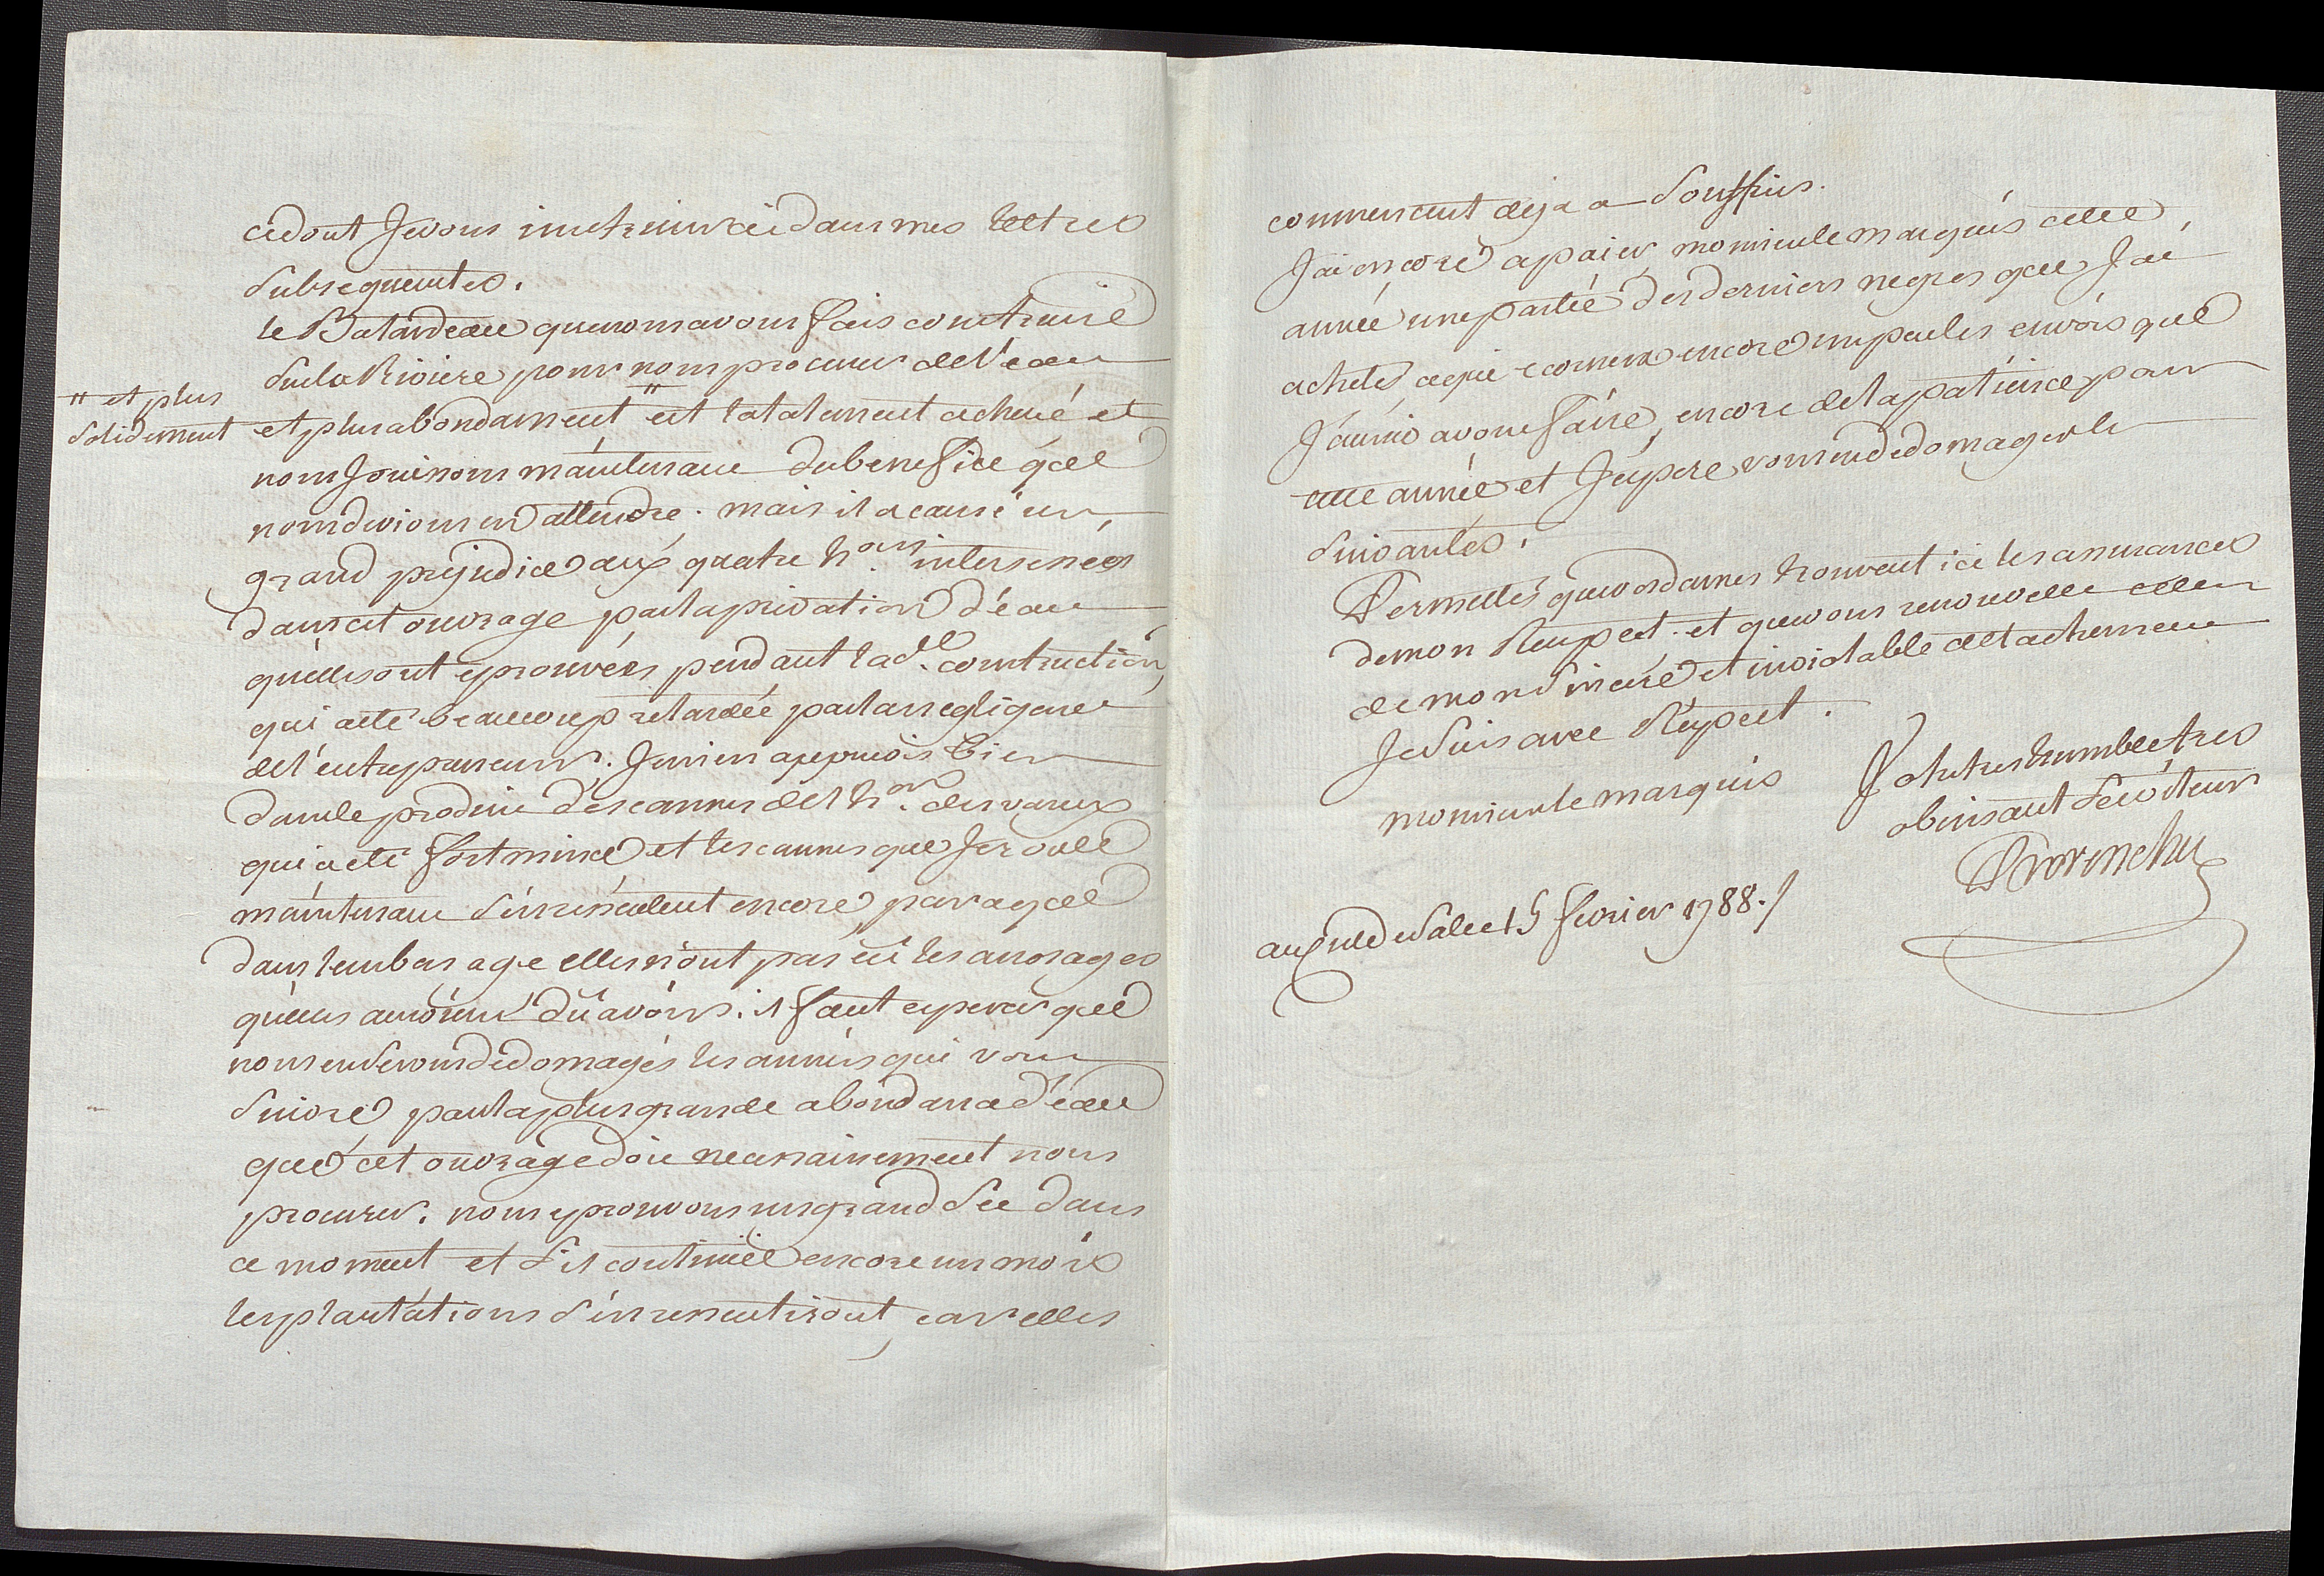 ce dont Je vous instruirai dans mes lettres
Subsequentes.
le Batardeau que nous avons fais construire
Sur la Riviere pour nous procurer de l'eau
" et plus
solidement
et plus abondament " est totalement achevé et
nous Jouissons maintenant du benefice que
nous devions en attendre. mais il a causé un
grand prejudice aux quatre h.ons interessées
dans cet ouvrage par la privation d'eau
qu'elles ont eprouvées pendant lad.e construction,
qui a eté beaucoup retardée par la negligence
de l'entrepreneur. Je m'en apperçois bien
dans le produit des cannes de l'h.on des vareux
qui a eté fort mince et les cannes que Je roule
maintenant s'en ressentent encore, parce que
dans leur bas age elles n'ont pas eü les arrosages
qu'elles auroient dü avoir. il faut esperer que
nous en serons dedomagés les années qui vont
Suivre par la plus grande abondance d'eau
que cet ouvrage doit necessairement nous
procurer. nous eprouvons un grand sec dans
ce moment et s'il continüe encore un mois
les plantations s'en ressentiront, car elles
commencent deja a Souffrir.
J'ai encore a paier, monsieur le marquis cette
année une partie des derniers negres que J'ai
achetés, ce qui ecornera encore un peu les envois que
J'aurois a vous faire, encore de la patience pour
cette année et J'espere vous en dedomager les
Suivantes.
Permettés que vos dames trouvent ici les assurances
de mon Respect. et que vous renouvelle celles
de mon Sincere et inviolable attachement
Je Suis avec Respect.
monsieur le marquis
Votre tres humble et tres
obeissant Serviteur
Prorenchu
au cul de Sac le 15 fevrier 1788./